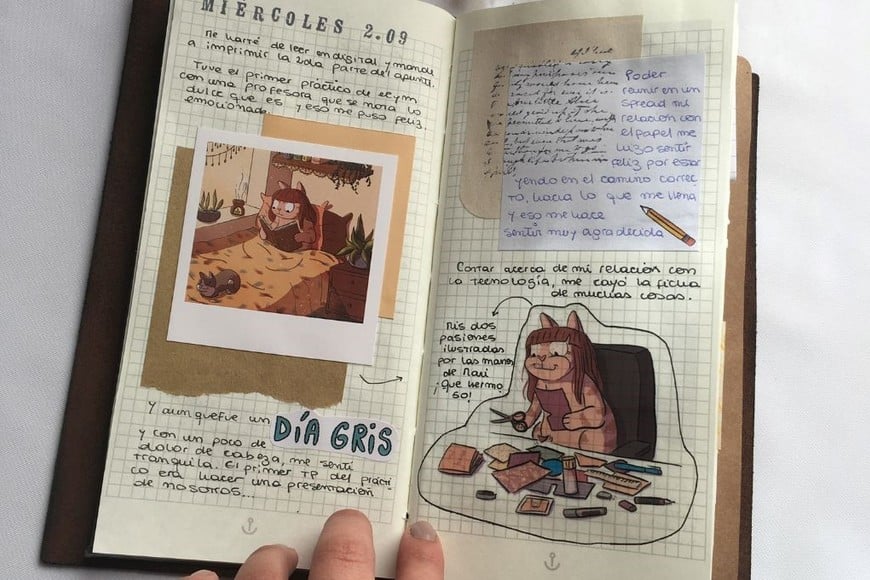 MIÉRCOLES 2.09
Me harté de leer en digital y mandé
a imprimir la 2da parte del apunte.
Tuve el primer práctico de
con una profesora que se nota lo
dulce que es y eso me puso feliz,
emocionada.
Y aunque fue un
DÍA GRIS
y con un poco de
dolor de cabeza, me sentí
tranquila. El primer TP del prácti
co era hacer una presentación
de nosotros...
Poder
reunir en un
spread mi
relación con
el papel me
hizo sentir
feliz por estar
yendo en el camino correc
to, hacia lo que me llena
y eso me hace
sentir muy agradecida
Contar acerca de mi relación con
la tecnología, me cayó la ficha
de muchas cosas.
Mis dos
pasiones
ilustradas
por las manos
de
¡Que hermo
so!